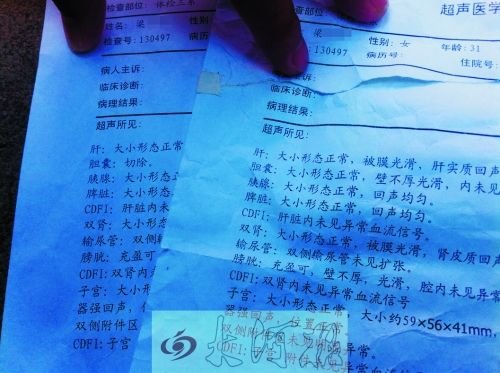 检查部位: 体检三系
姓名: 梁
检查号: 130497
病人主诉:
临床诊断:
病理结果:
超声所见:
肝: 大小形态正常,
胆囊: 切除。
胰腺: 大小形态
脾脏: 大小形态
CDFI: 肝脏内未见
双肾: 大小形态
输尿管: 双侧输
膀胱: 充盈可,
CDFI: 双肾内
子宫: 大小形态
器强回声,
双侧附件区
CDFI: 子宫
检查部位:
超声医学
梁
性别: 女
年龄: 31
130497
病历号:
住院号:
主诉:
临床诊断:
病理结果:
超声所见:
肝: 大小形态正常, 被膜光滑, 肝实质回声
胆囊: 大小形态正常, 壁不厚光滑, 内未见
胰腺: 大小形态正常, 回声均匀。
脾脏: 大小形态正常, 回声均匀。
CDFI: 肝脏内未见异常血流信号。
双肾: 大小形态正常, 被膜光滑, 肾皮质回声
输尿管: 双侧输尿管未见扩张。
膀胱: 充盈可, 壁不厚, 光滑, 腔内未见异常
CDFI: 双肾内未见异常血流信号
子宫: 大小形态正常, 大小约59×56×41mm,
器强回声, 位置正常
双侧附件区未见明显异常
CDFI: 子宫、附件